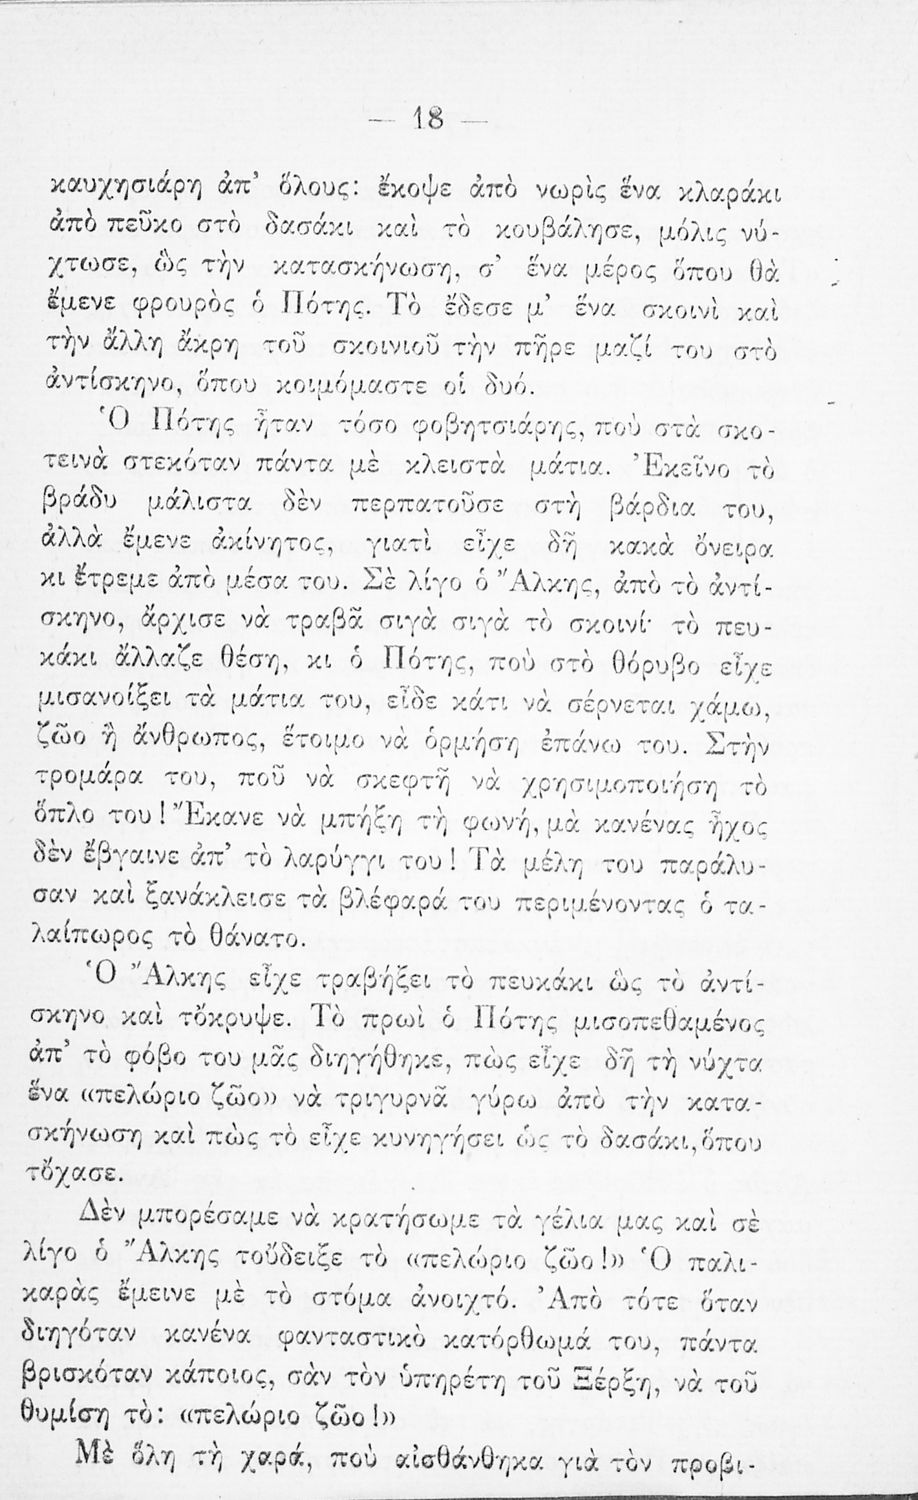 — 18 —
καυχησιάρη ἀπ’ ὅλους: ἔκοψε ἀπὸ νωρὶς ἕνα κλαράκι
ἀπὸ πεῦκο στὸ δασάκι καὶ τὸ κουβάλησε, μόλις νύ-
χτωσε, ὣς τὴν κατασκήνωση, σ’ ἕνα μέρος ὅπου θὰ
ἔμενε φρουρὸς ὁ Πότης. Τὸ ἔδεσε μ’ ἕνα σκοινὶ καὶ
τὴν ἄλλη ἄκρη τοῦ σκοινιοῦ τὴν πῆρε μαζί του στὸ
ἀντίσκηνο, ὅπου κοιμόμαστε οἱ δυό.
Ὁ Πότης ἦταν τόσο φοβητσιάρης, ποὺ στὰ σκο-
τεινὰ στεκόταν πάντα μὲ κλειστὰ μάτια. Ἐκεῖνο τὸ
βράδυ μάλιστα δὲν περπατοῦσε στὴ βάρδια του,
ἀλλὰ ἔμενε ἀκίνητος, γιατὶ εἶχε δῆ κακὰ ὄνειρα
κι ἔτρεμε ἀπὸ μέσα του. Σὲ λίγο ὁ Ἄλκης, ἀπὸ τὸ ἀντί-
σκηνο, ἄρχισε νὰ τραβᾶ σιγὰ σιγὰ τὸ σκοινί· τὸ πευ-
κάκι ἄλλαζε θέση, κι ὁ Πότης, ποὺ στὸ θόρυβο εἶχε
μισανοίξει τὰ μάτια του, εἶδε κάτι νὰ σέρνεται χάμω,
ζῶο ἢ ἄνθρωπος, ἕτοιμο νὰ ὁρμήση ἐπάνω του. Στὴν
τρομάρα του, ποῦ νὰ σκεφτῆ νὰ χρησιμοποιήση τὸ
ὅπλο του! Ἔκανε νὰ μπήξη τὴ φωνή, μὰ κανένας ἦχος
δὲν ἔβγαινε ἀπ’ τὸ λαρύγγι του! Τὰ μέλη του παράλυ-
σαν καὶ ξανάκλεισε τὰ βλέφαρά του περιμένοντας ὁ τα-
λαίπωρος τὸ θάνατο.
Ὁ Ἄλκης εἶχε τραβήξει τὸ πευκάκι ὣς τὸ ἀντί-
σκηνο καὶ τὄκρυψε. Τὸ πρωὶ ὁ Πότης μισοπεθαμένος
ἀπ’ τὸ φόβο του μᾶς διηγήθηκε, πὼς εἶχε δῆ τὴ νύχτα
ἕνα «πελώριο ζῶο» νὰ τριγυρνᾶ γύρω ἀπὸ τὴν κατα-
σκήνωση καὶ πὼς τὸ εἶχε κυνηγήσει ὡς τὸ δασάκι, ὅπου
τὄχασε.
Δὲν μπορέσαμε νὰ κρατήσωμε τὰ γέλια μας καὶ σὲ
λίγο ὁ Ἄλκης τοὔδειξε τὸ «πελώριο ζῶο!» Ὁ παλι-
καρὰς ἔμεινε μὲ τὸ στόμα ἀνοιχτό. Ἀπὸ τότε ὅταν
διηγόταν κανένα φανταστικὸ κατόρθωμά του, πάντα
βρισκόταν κάποιος, σὰν τὸν ὑπηρέτη τοῦ Ξέρξη, νὰ τοῦ
θυμίση τὸ: «πελώριο ζῶο!»
Μὲ ὅλη τὴ χαρά, ποὺ αἰσθάνθηκα γιὰ τὸν προβι-